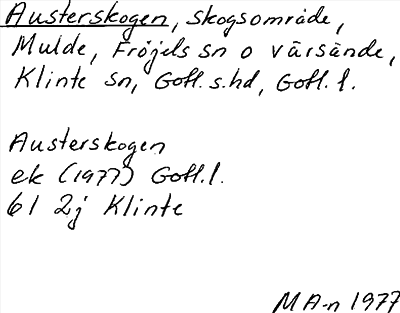 Austerskogen, skogsområde,
Mulde, Fröjels sn o värsände,
Klinte sn, Gotl. s. hd, Gotl. l.
Austerskogen
ek (1977) Gotl. l.
6I 2j Klinte
MA-n 1977